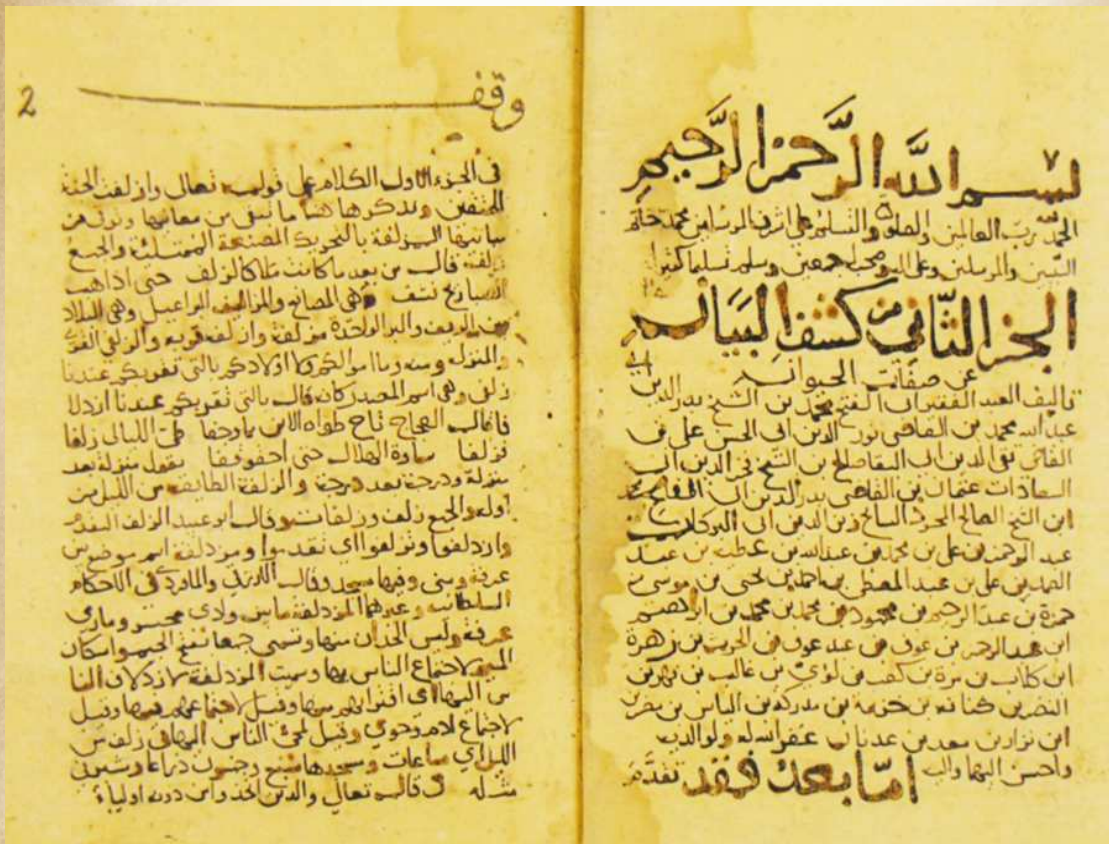 بسم الله الرحمن الرحيم
الحمد لله رب العالمين والصلوة والتسليم على اشرف المرسلين محمد خاتم
النبيين والمرسلين وعلى اله وصحبه اجمعين وسلم تسليما كثيرا
الجزء الثاني من كشف البيان
عن صفات الحيوان
تاليف العبد الفقير ابى الفتح محمد بن الشيخ بدر الدين
عبد الله محمد بن القاضى نور الدين ابى الحسن على بن
القاضى تقى الدين ابى البقا صالح بن الشيخ فخر الدين ابى
السعادات عثمان بن القاضى بدر الدين ابى
ابن الشيخ الصالح السائح زين الدين ابى البركات
عبد الرحمن بن على بن محمد بن عبد الله بن عطية بن عبد
الصمد بن على بن عبد المعطى بن احمد بن يحيى بن موسى بن
حمزة بن عبد الرحيم بن محمود بن محمد بن محمد بن ابراهيم
ابن عبد الرحمن بن عوف بن عبد عوف بن الحرث بن زهرة
ابن كلاب بن مرة بن كعب بن لؤي بن غالب بن فهر بن
النضر بن كنانه بن خزيمه بن مدركة بن الياس بن مضر بن
ابن نزار بن معد بن عدنان غفر الله له ولوالديه
واحسن اليهما واليه اما بعد فقد تقدم
2
وقف
فى الجزء الاول الكلام على قوله تعالى وازلفت الجنة
للمتقين ونذكر هاهنا ما تبقى من معانيها ونوفى من
مبانيها الزلفة بالتحريك المصنعة الممتلئة والجمع
زلف قال من بعد ما كانت ملا كالزلف حتى اذا
وهى المصانع والمزالف البراغيل وهى البلاد
بين الريف والبر الواحدة مزلفة وازلفه قربه والزلفى القربة
والمنزله ومنه وما اموالكم ولا اولادكم بالتى تقربكم عندنا
زلفى وهى اسم المصدر كانه قال بالتى تقربكم عندنا ازدلا
فا قال العجاج ناج طواه الاين مما وجفا طى الليالى زلفا
فزلفا سماوة الهلال حتى احقوقفا يقول منزلة بعد
منزلة ودرجة بعد درجة والزلفة الطايفه من الليل من
اوله والجمع زلف وزلفات وقال ابو عبيد الزلف التقدم
وازدلفوا وتزلفوا اى تقدموا ومزدلفة اسم موضع بين
عرفة ومنى وفيها مسجد وقال الازرقي والماوردى فى الاحكام
السلطانيه وغيرهما المزدلفة ما بين وادى محسر ومازمى
عرفة وليس الحدان منها وتسمى جمعا بفتح الجيم واسكان
الميم لاجتماع الناس بها وسميت المزدلفة لازدلاف النا
س اليها اى اقترابهم منها وقيل لاجتماعهم فيها وقيل
لاجتماع ادم وحوى وقيل لمجئ الناس اليها فى زلف من
الليل اي ساعات ومسجدها سبع وخمسون ذراعا وشبر فى
مثله قال تعالى والذين اتخذوا من دونه اولياء